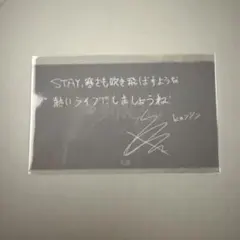 STAY、寒さも吹き飛ばすような
熱いライブにしましょうね
ヒョンジン